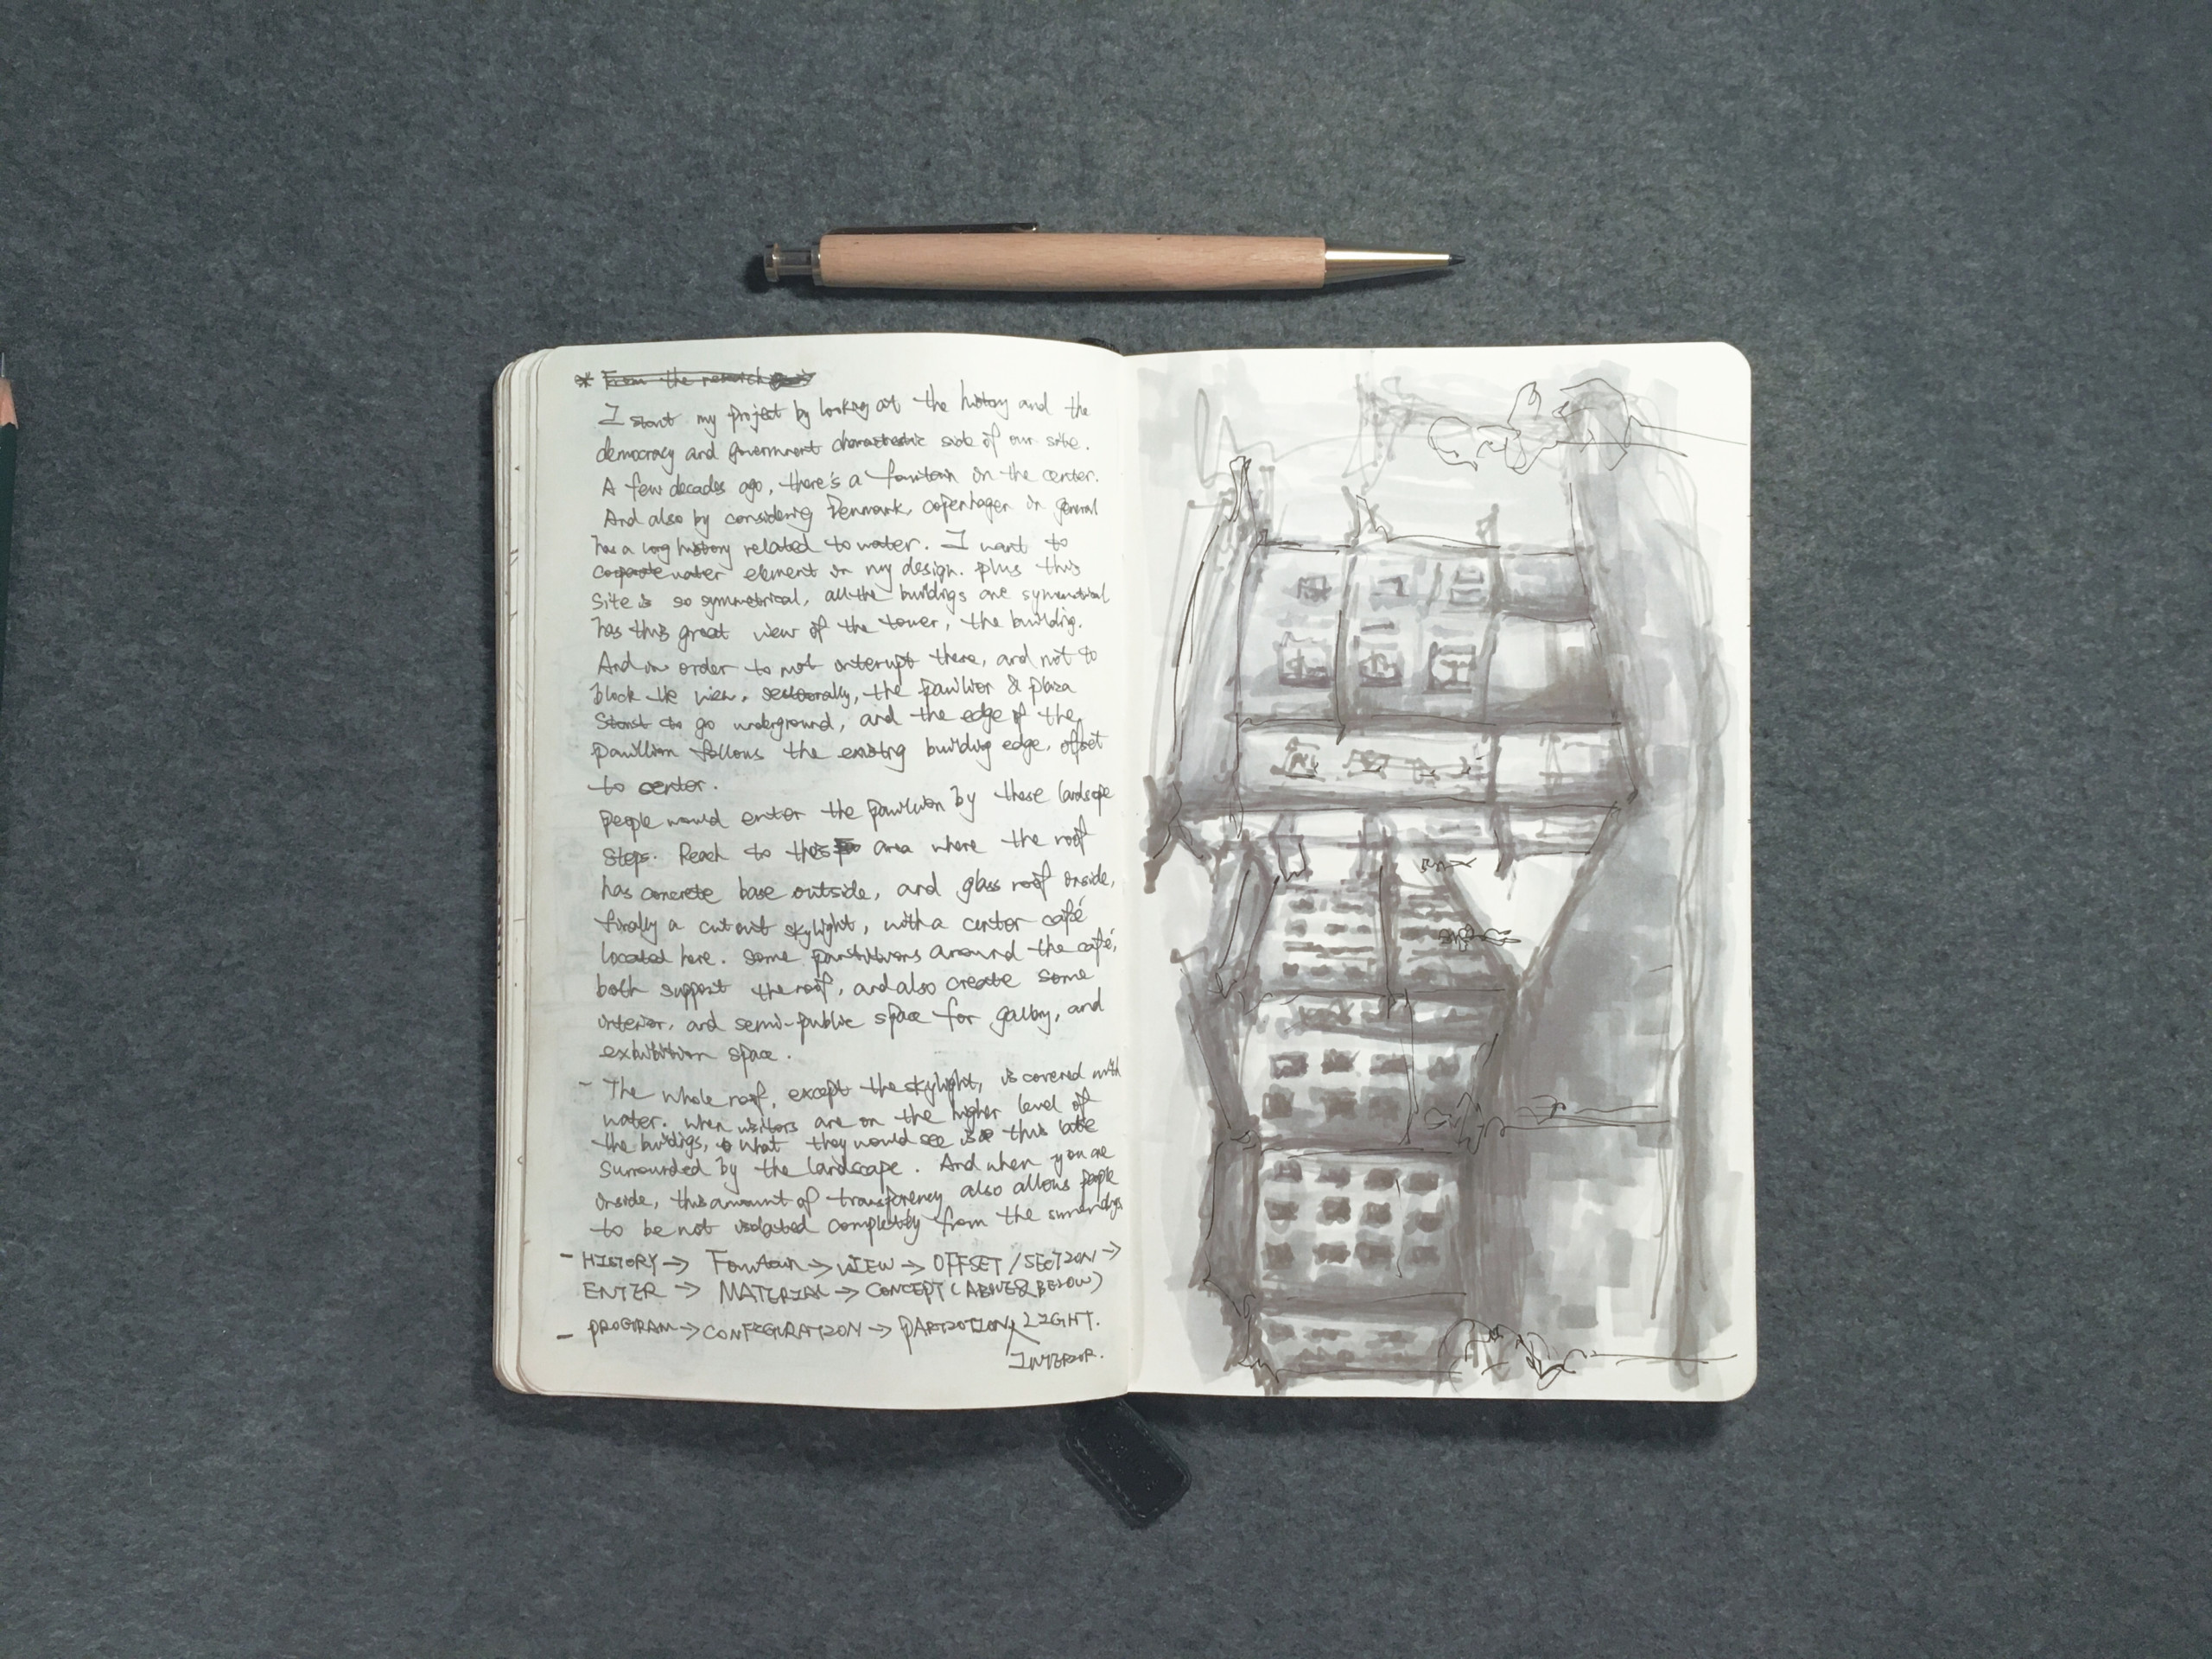 * From the research
I start my project by looking at the history and the
democracy and government characteristic side of our site.
A few decades ago, there's a fountain in the center.
And also by considering Denmark, Copenhagen in general
has a long history related to water. I want to
water element in my design. plus this
site is so symmetrical, all the buildings are symmetrical
has this great view of the tower, the building.
And in order to not interupt there, and not to
block the view, sectionally, the pavilion & plaza
start to go underground, and the edge of the
pavillion follows the existing building edge, offset
to center.
People would enter the pavilion by these landscape
steps. Reach to this area where the roof
has concrete base outside, and glass roof inside,
finally a cut out skylight, with a center café
located here. Some partitions around the café,
both support the roof, and also create some
interior, and semi-public space for gallery, and
exhibition space.
- The whole roof, except the skylight, is covered with
water. When visitors are on the higher level of
the buildings, what they would see is this lake
surrounded by the landscape. And when you are
inside, this amount of transparency also allows people
to be not isolated completely from the surroundings
- HISTORY → Fountain → VIEW → OFFSET / SECTION →
ENTER → MATERIAL → CONCEPT (ABOVE & BELOW)
- PROGRAM → CONFIGURATION → PARTITION, LIGHT.
INTERIOR.